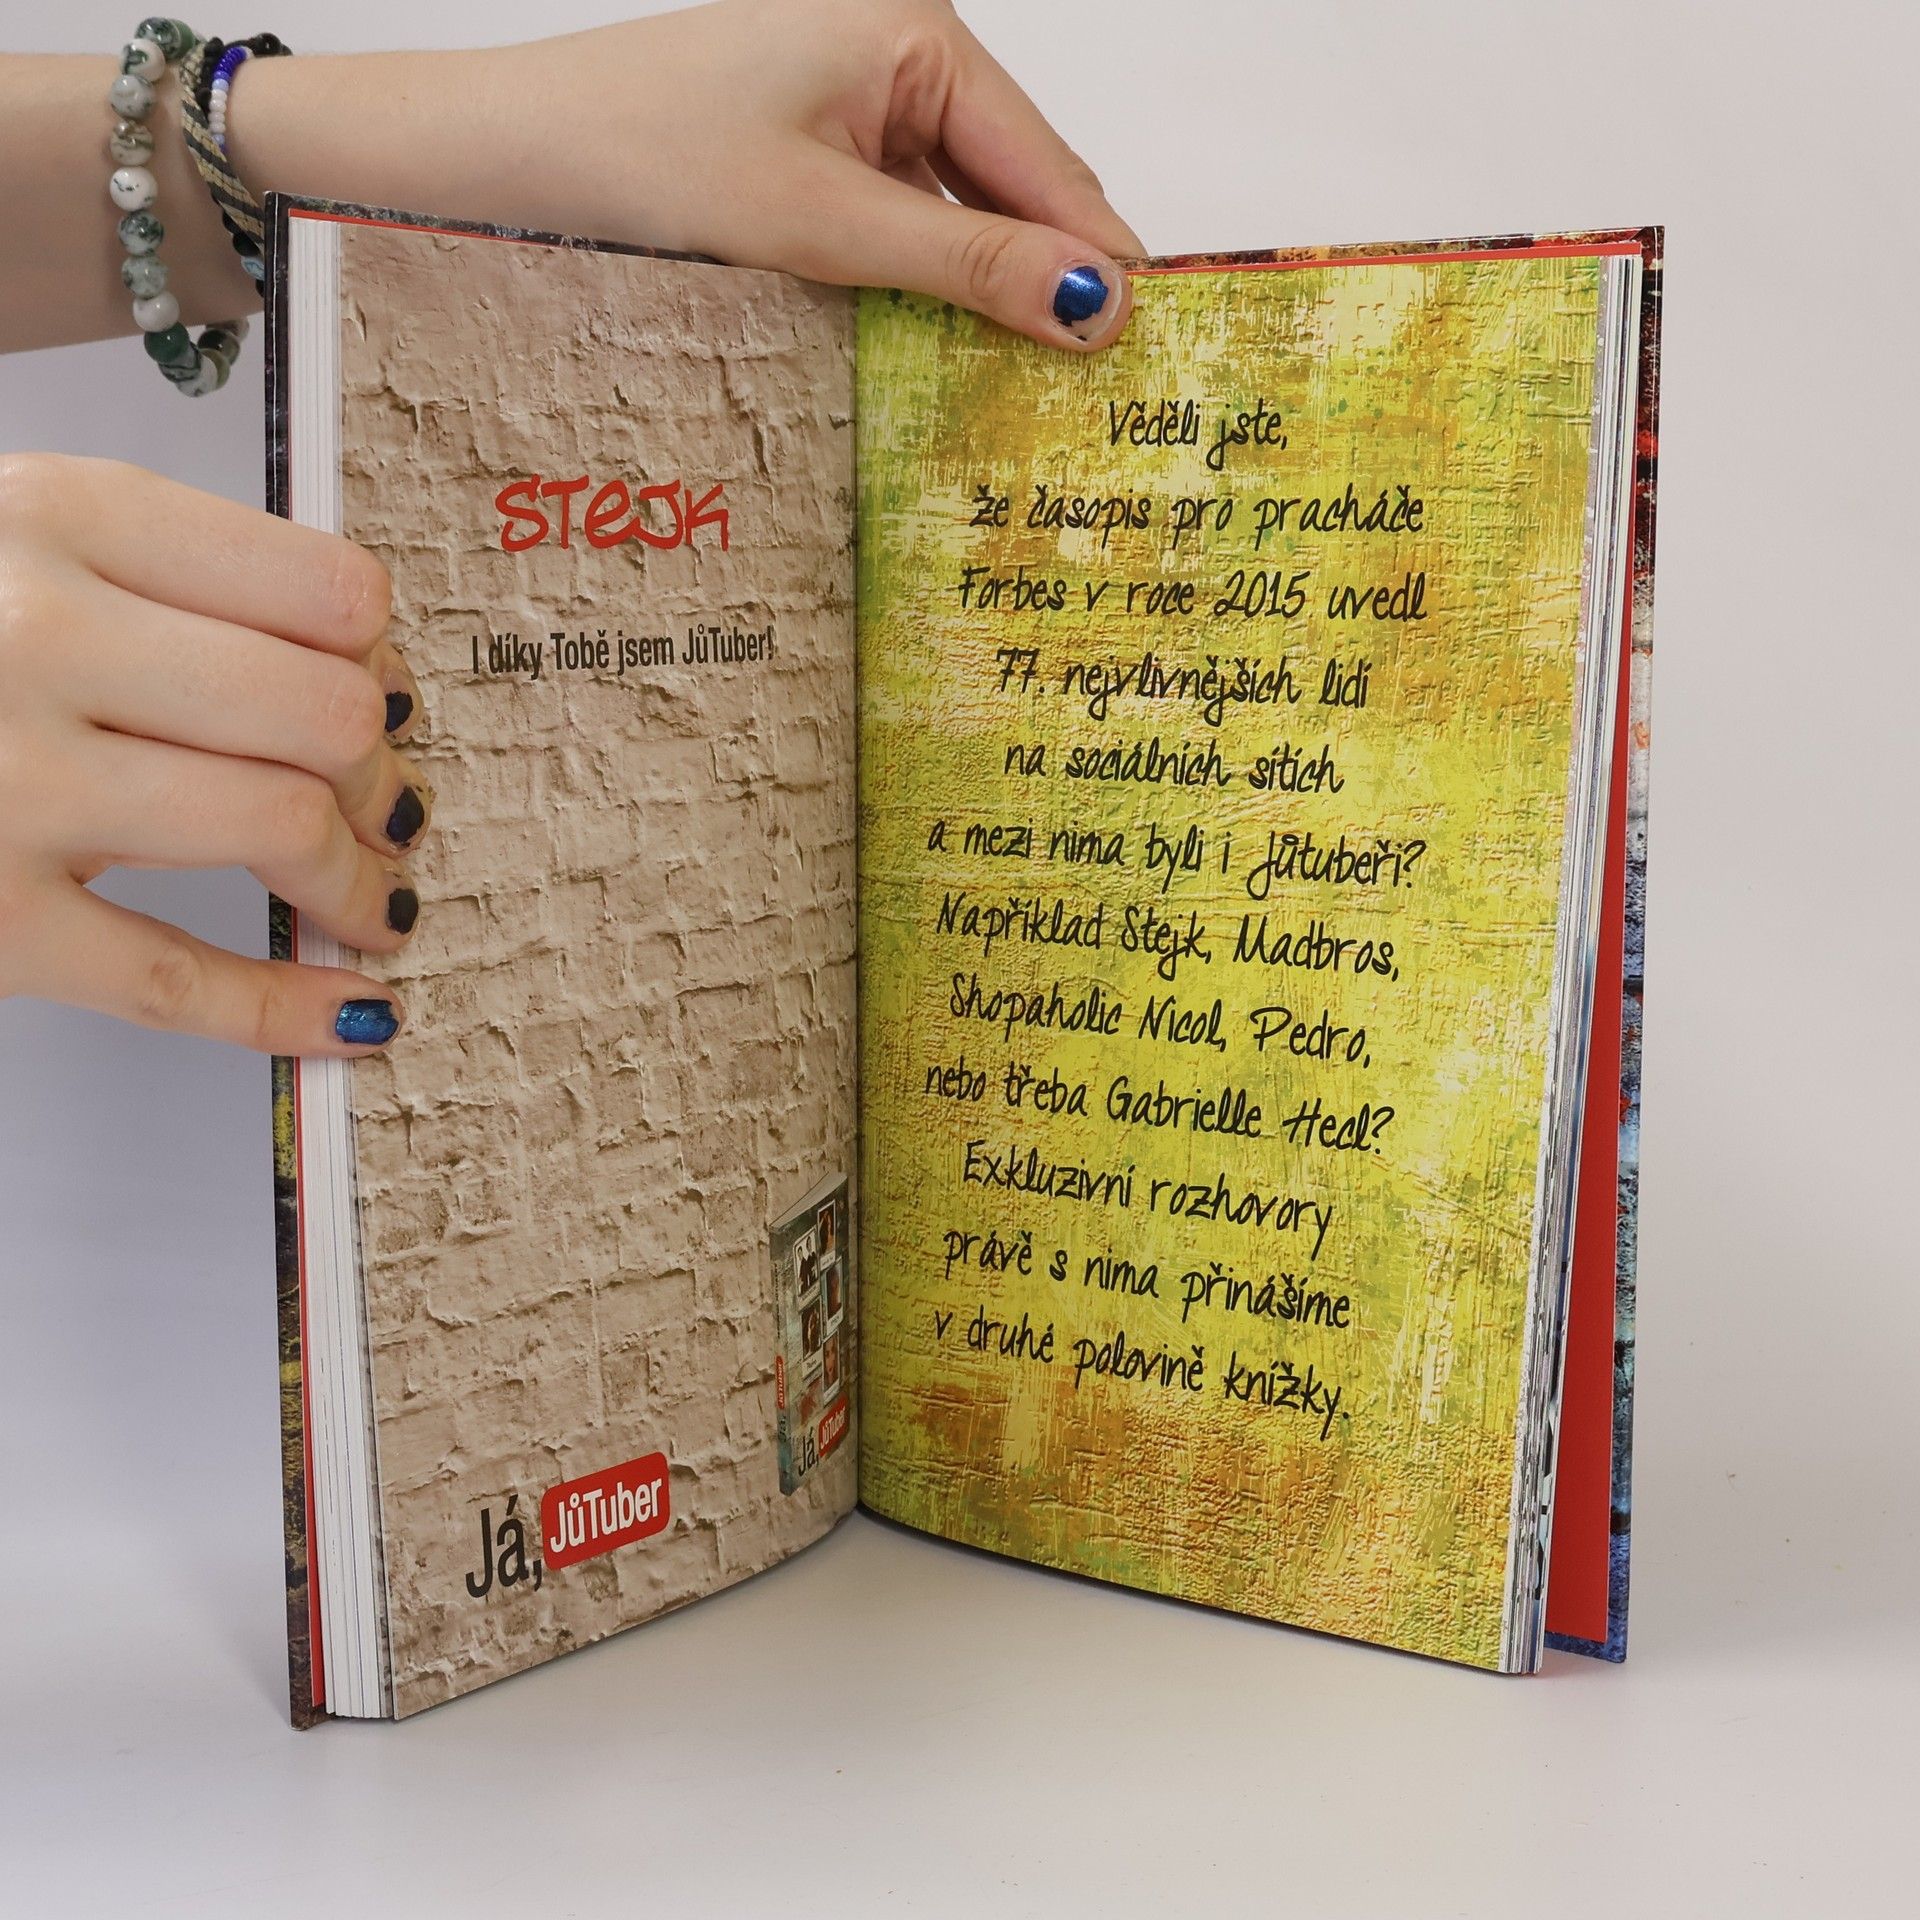 STEJK
I díky Tobě jsem JůTuber!
Já, JůTuber
Já, JůTuber
Věděli jste,
že časopis pro pracháče
Forbes v roce 2015 uvedl
77. nejvlivnějších lidí
na sociálních sítích
a mezi nima byli i Jůtubeři?
Například Stejk, Madbros,
Shopaholic Nicol, Pedro,
nebo třeba Gabrielle Hecl?
Exkluzivní rozhovory
právě s nima přinášíme
v druhé polovině knížky.